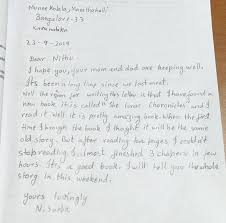 Munnekolala, Marathahalli
Bangalore-37
Karnataka
23-9-2019
Dear Nithu
I hope you, your mom and dad are keeping well.
Its been a long time since we last meet.
Well the reason for writing this letter is that I have found a
new book. it is called the lunar Choronicles and I
read it. Well it is pretty amazing book. When the first
time I through the book I thought it will be the same
old story. But after reading two pages I couldn't
stop reading, I almost finished 3 chapters in few
hours. It's a good book. I will tell you the whole
story in this weekend.
Yours lovingly
N.